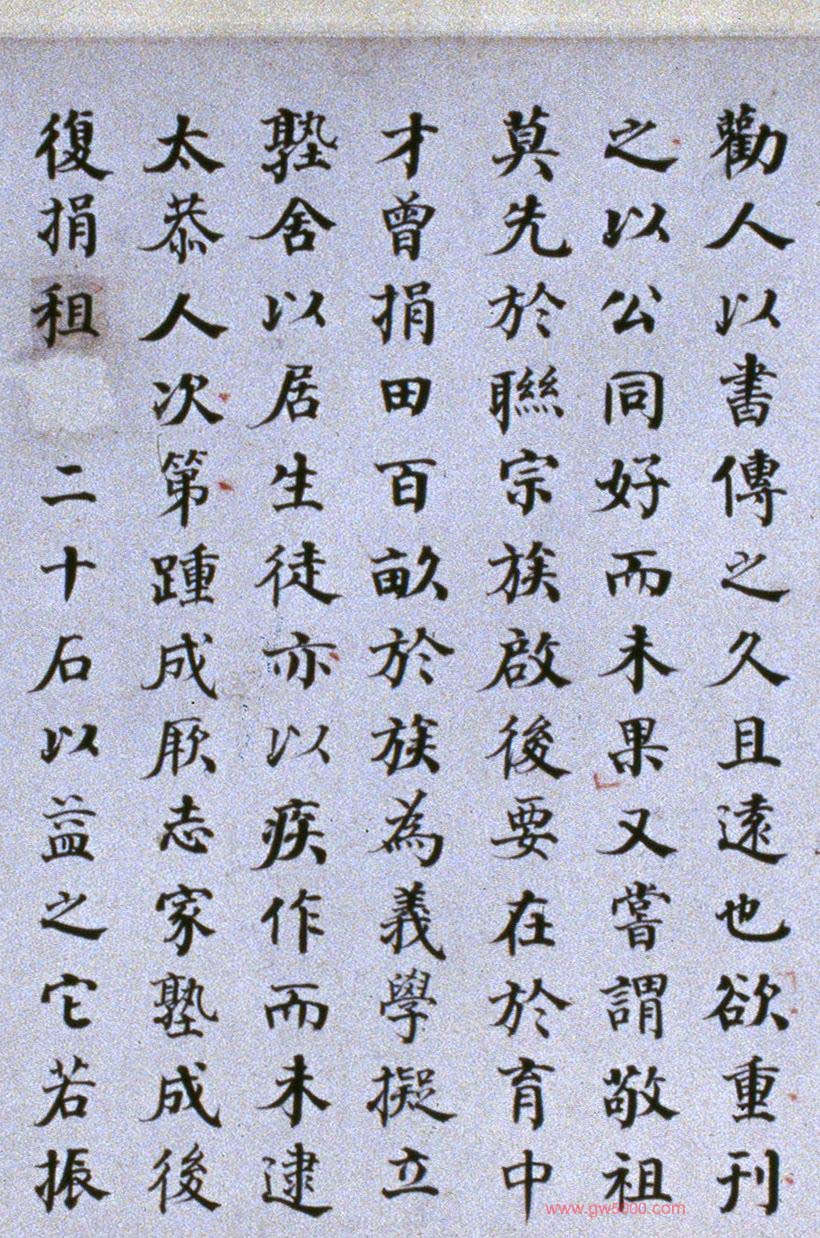 勸人以書傳之久且遠也欲重刊
之以公同好而未果又嘗謂敬祖
莫先於聮宗族啟後要在於育中
才曾捐田百畝於族為義學擬立
塾舍以居生徒亦以疾作而未逮
太恭人次第踵成厥志家塾成後
復捐租二十石以益之它若振
www.gw5000.com